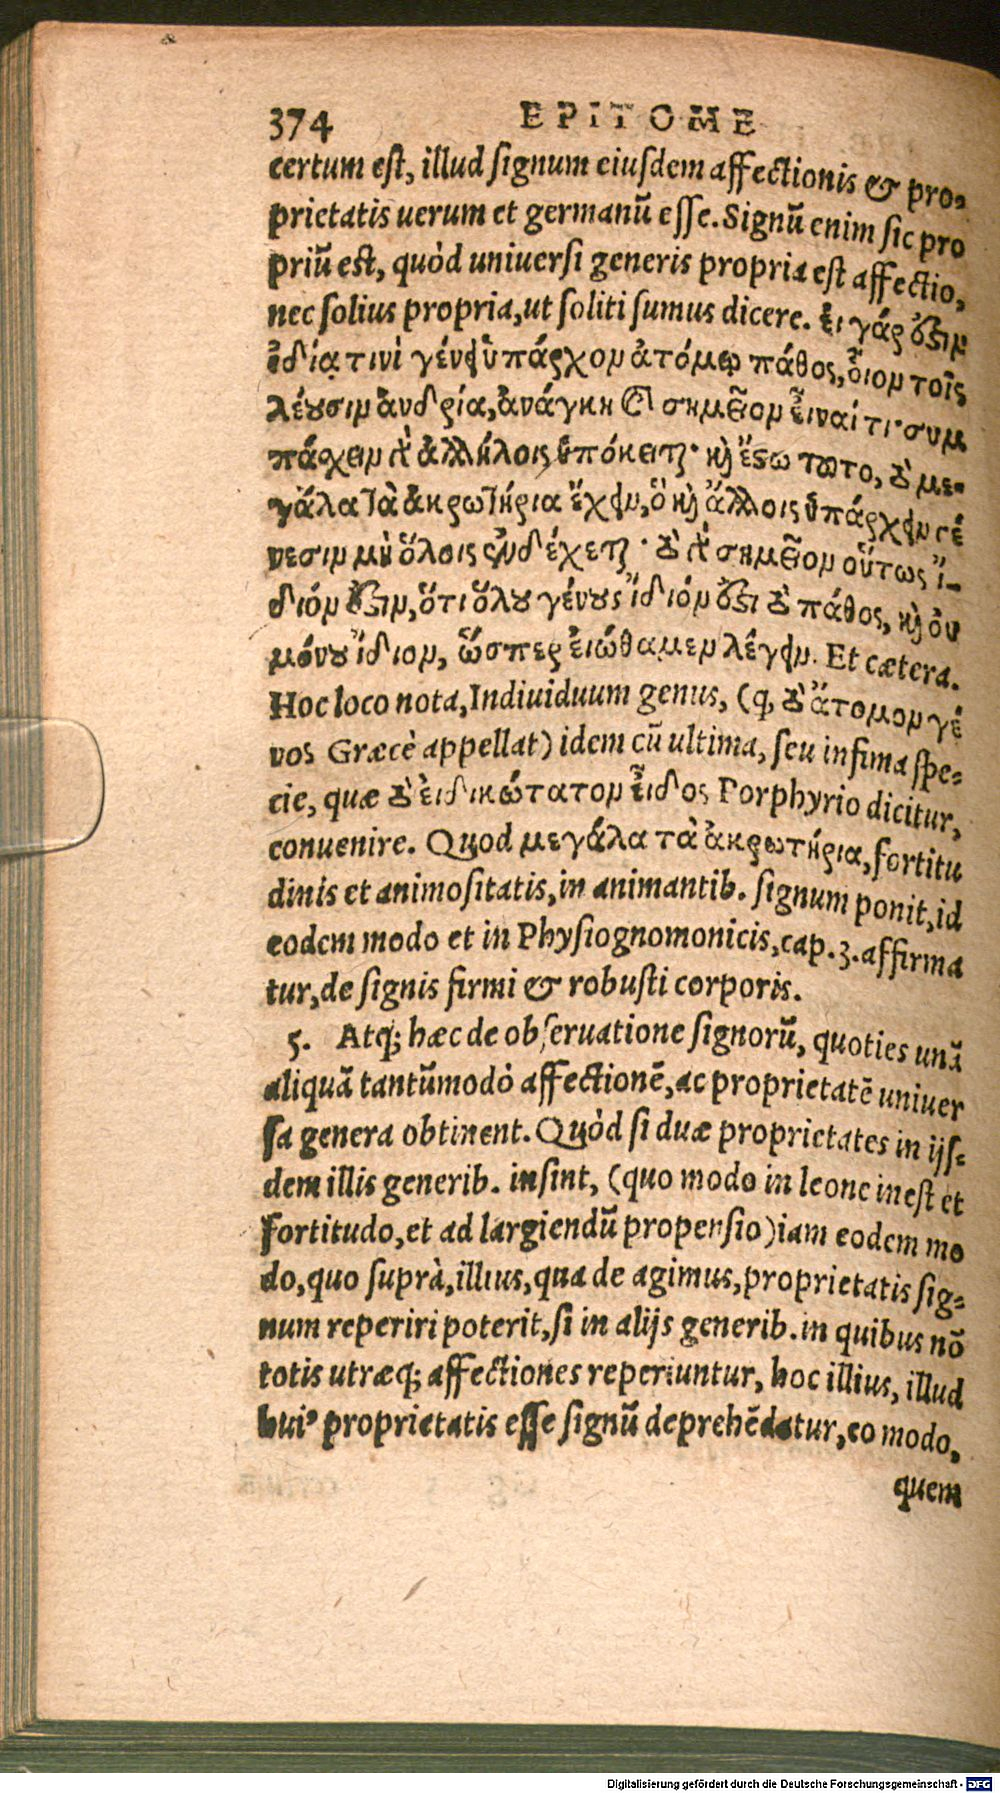 374 EPITOME
certum est, illud signum eiusdem affectionis & pro-
prietatis uerum et germanũ esse. Signũ enim sic pro
priũ est, quòd uniuersi generis propria est affectio,
nec solius propria, ut soliti sumus dicere. εἰ γάρ ἐστιν
ἰδίᾳ τινὶ γένει ὑπάρχον ἀτόμῳ πάθος, οἷον τοῖς
λέουσιν ἀνδρία, ἀνάγκη καὶ σημεῖον εἶναί τι· συμ
πάσχειν γὰρ ἀλλήλοις ὑπόκειται· καὶ ἔστω τοῦτο, τὸ με-
γάλα τὰ ἀκρωτήρια ἔχειν, ὃ καὶ ἄλλοις ὑπάρχειν γέ
νεσιν μὴ ὅλοις ἐνδέχεται· τὸ γὰρ σημεῖον οὕτως ἴ-
διόν ἐστιν, ὅτι ὅλου γένους ἴδιόν ἐστι τὸ πάθος, καὶ οὐ
μόνου ἴδιον, ὥσπερ εἰώθαμεν λέγειν. Et cætera.
Hoc loco nota, Indiuiduum genus, (q, τὸ ἄτομον γέ
νος Græcè appellat) idem cũ ultima, seu infima spe-
cie, quæ τὸ εἰδικώτατον εἶδος Porphyrio dicitur,
conuenire. Quod μεγάλα τὰ ἀκρωτήρια, fortitu
dinis et animositatis, in animantib. signum ponit, id
eodem modo et in Physiognomonicis, cap. 3. affirma
tur, de signis firmi & robusti corporis.
5. Atq; hæc de obseruatione signorũ, quoties unã
aliquã tantũmodò affectionẽ, ac proprietatẽ uniuer
sa genera obtinent. Quòd si duæ proprietates in ijs-
dem illis generib. insint, (quo modo in leone inest et
fortitudo, et ad largiendũ propensio) iam eodem mo
do, quo suprà, illius, qua de agimus, proprietatis sig-
num reperiri poterit, si in alijs generib. in quibus nõ
totis utræq; affectiones reperiuntur, hoc illius, illud
hui' proprietatis esse signũ deprehẽdatur, eo modo,
quem
Digitalisierung gefördert durch die Deutsche Forschungsgemeinschaft - DFG